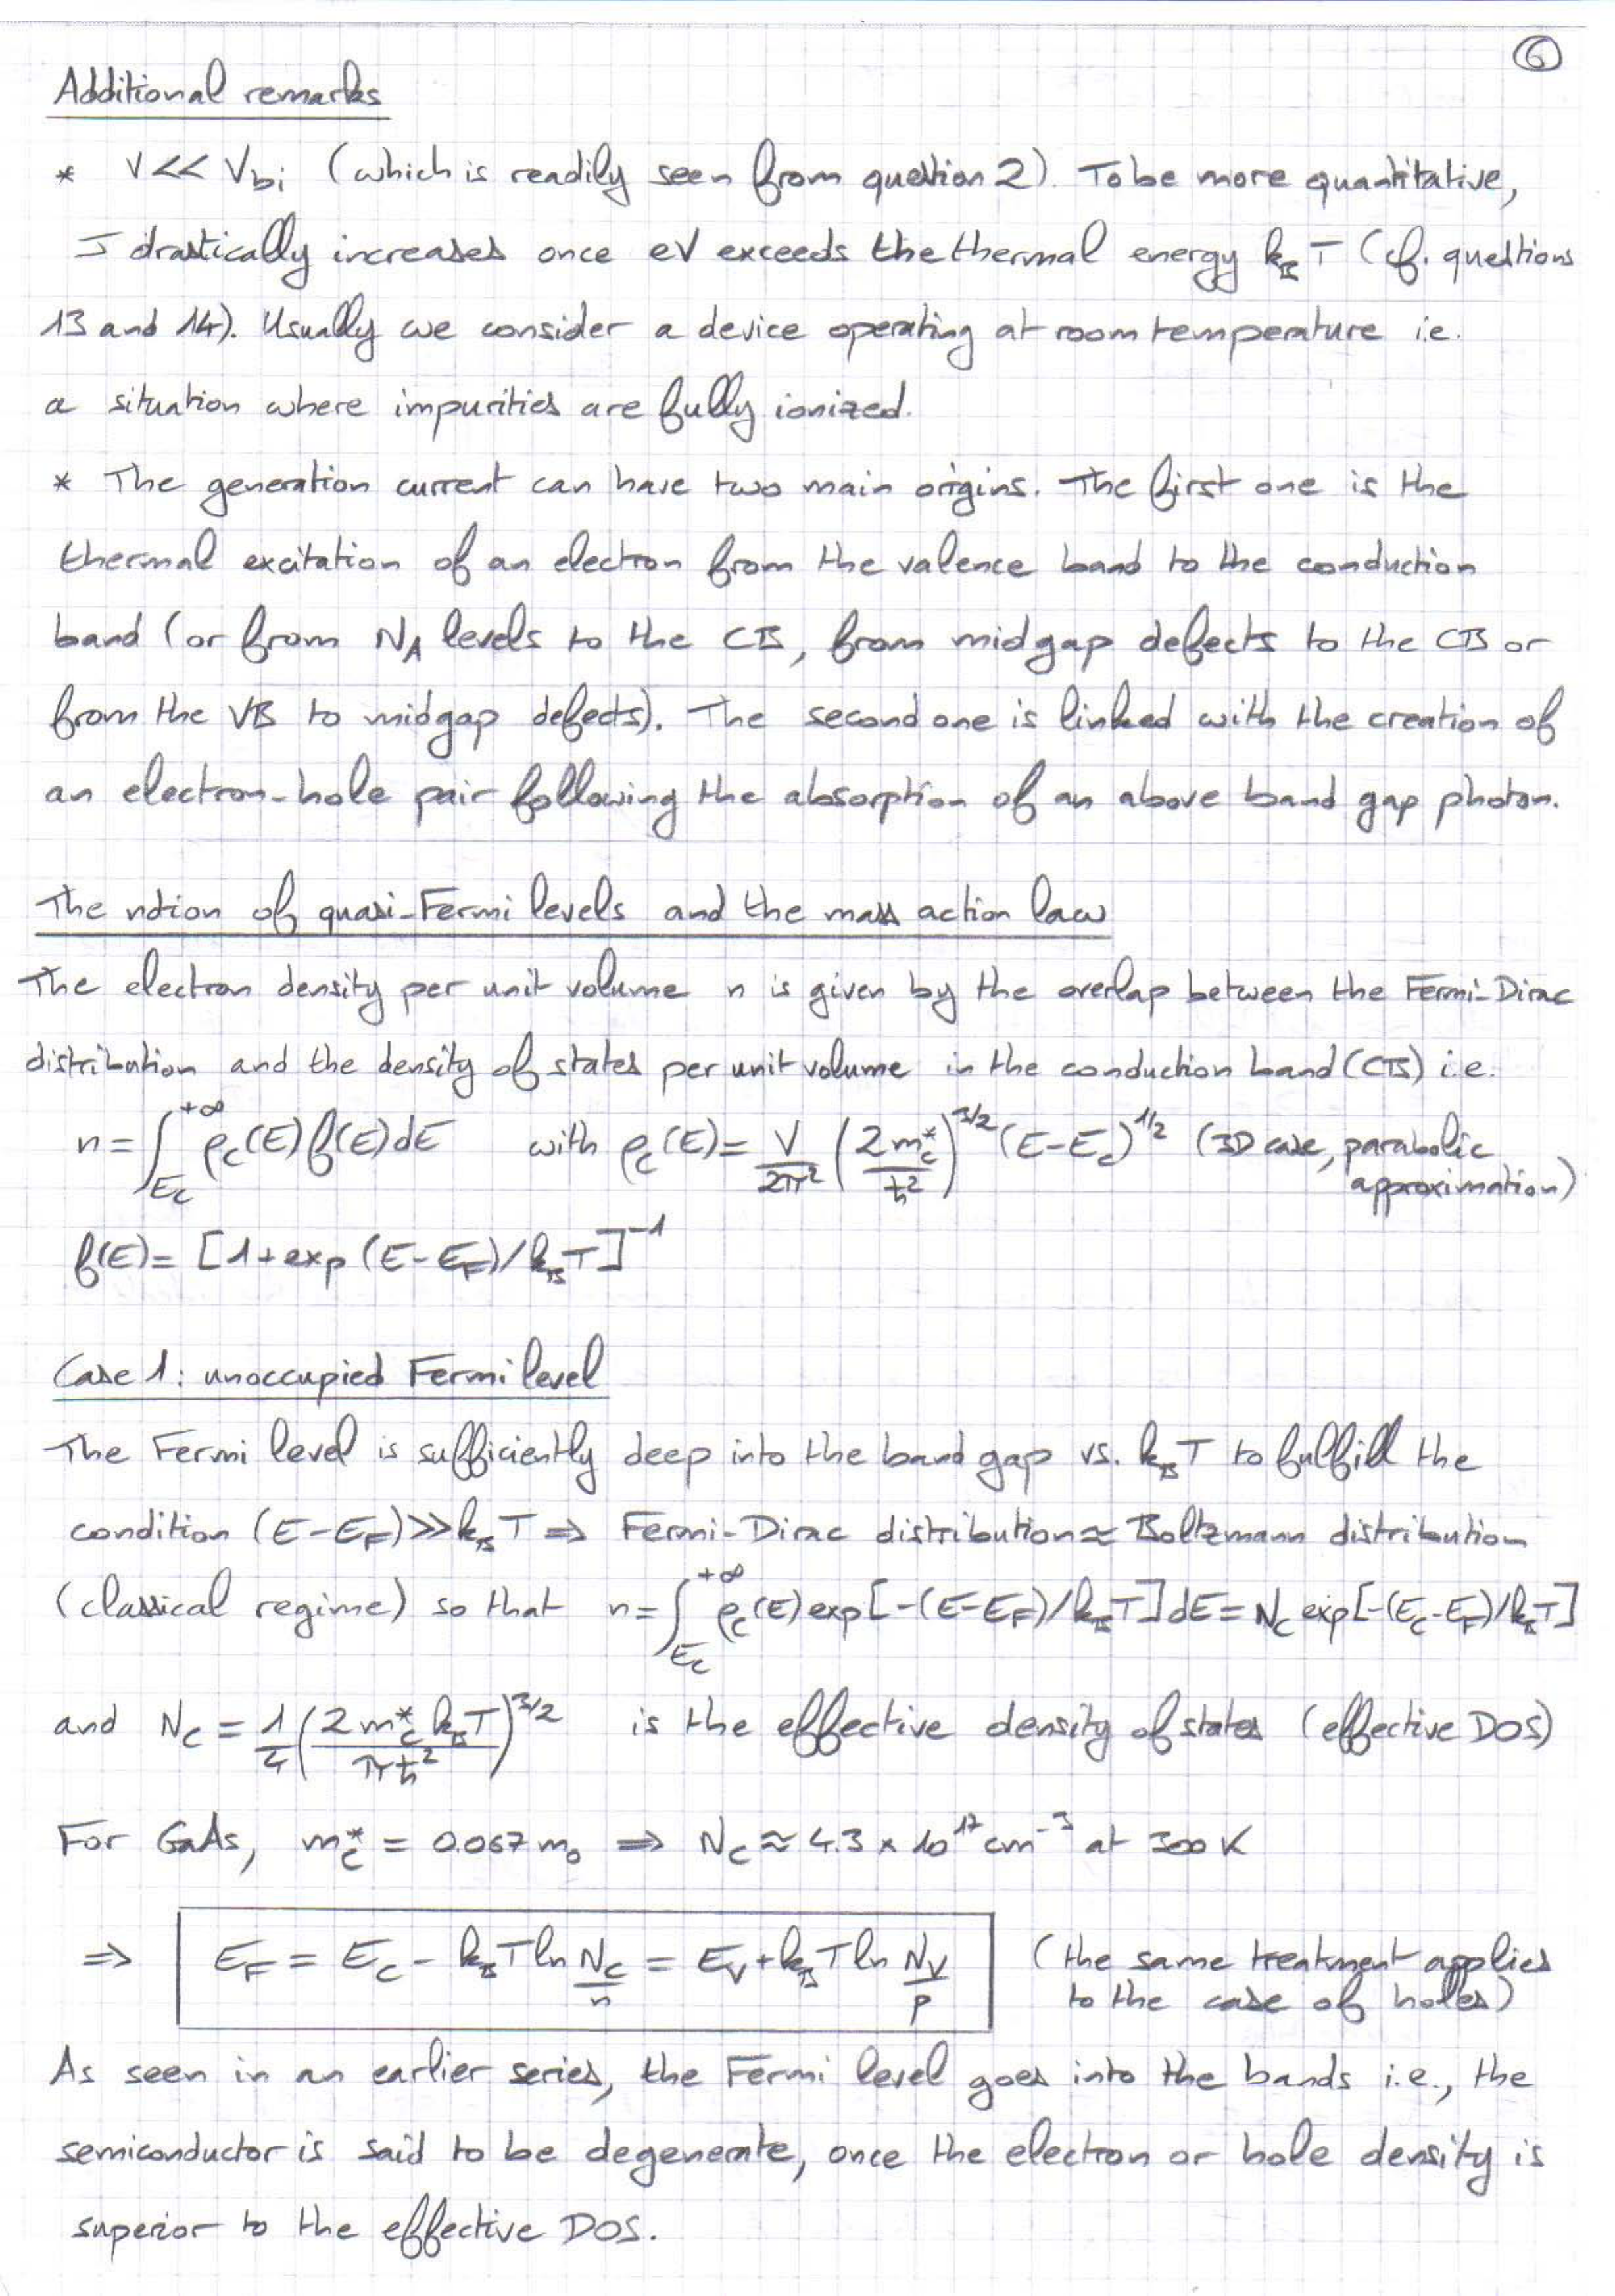 6
Additional remarks
* V << Vbi (which is readily seen from question 2). To be more quantitative,
J drastically increases once eV exceeds the thermal energy kBT (cf. questions
13 and 14). Usually we consider a device operating at room temperature i.e.
a situation where impurities are fully ionized.
* The generation current can have two main origins. The first one is the
thermal excitation of an electron from the valence band to the conduction
band (or from NA levels to the CB, from midgap defects to the CB or
from the VB to midgap defects). The second one is linked with the creation of
an electron-hole pair following the absorption of an above band gap photon.
The notion of quasi-Fermi levels and the mass action law
The electron density per unit volume n is given by the overlap between the Fermi-Dirac
distribution and the density of states per unit volume in the conduction band (CB) i.e.
n = ∫_{Ec}^{+∞} ρc(E) f(E) dE with ρc(E) = V/2π² (2mc*/ħ²)^{3/2} (E-Ec)^{1/2} (3D case, parabolic
approximation)
f(E) = [1+exp(E-EF)/kBT]^{-1}
Case 1: unoccupied Fermi level
The Fermi level is sufficiently deep into the band gap vs. kBT to fulfill the
condition (E-EF)>>kBT ⇒ Fermi-Dirac distribution ≈ Boltzmann distribution
(classical regime) so that n = ∫_{Ec}^{+∞} ρc(E) exp[-(E-EF)/kBT] dE = Nc exp[-(Ec-EF)/kBT]
and Nc = 1/4 (2mc* kBT/πħ²)^{3/2} is the effective density of states (effective DOS)
For GaAs, mc* = 0.067 m0 ⇒ Nc ≈ 4.3 × 10^{17} cm^{-3} at 300 K
⇒ EF = Ec - kBT ln Nc/n = Ev + kBT ln Nv/p (the same treatment applies
to the case of holes)
As seen in an earlier series, the Fermi level goes into the bands i.e., the
semiconductor is said to be degenerate, once the electron or hole density is
superior to the effective DOS.